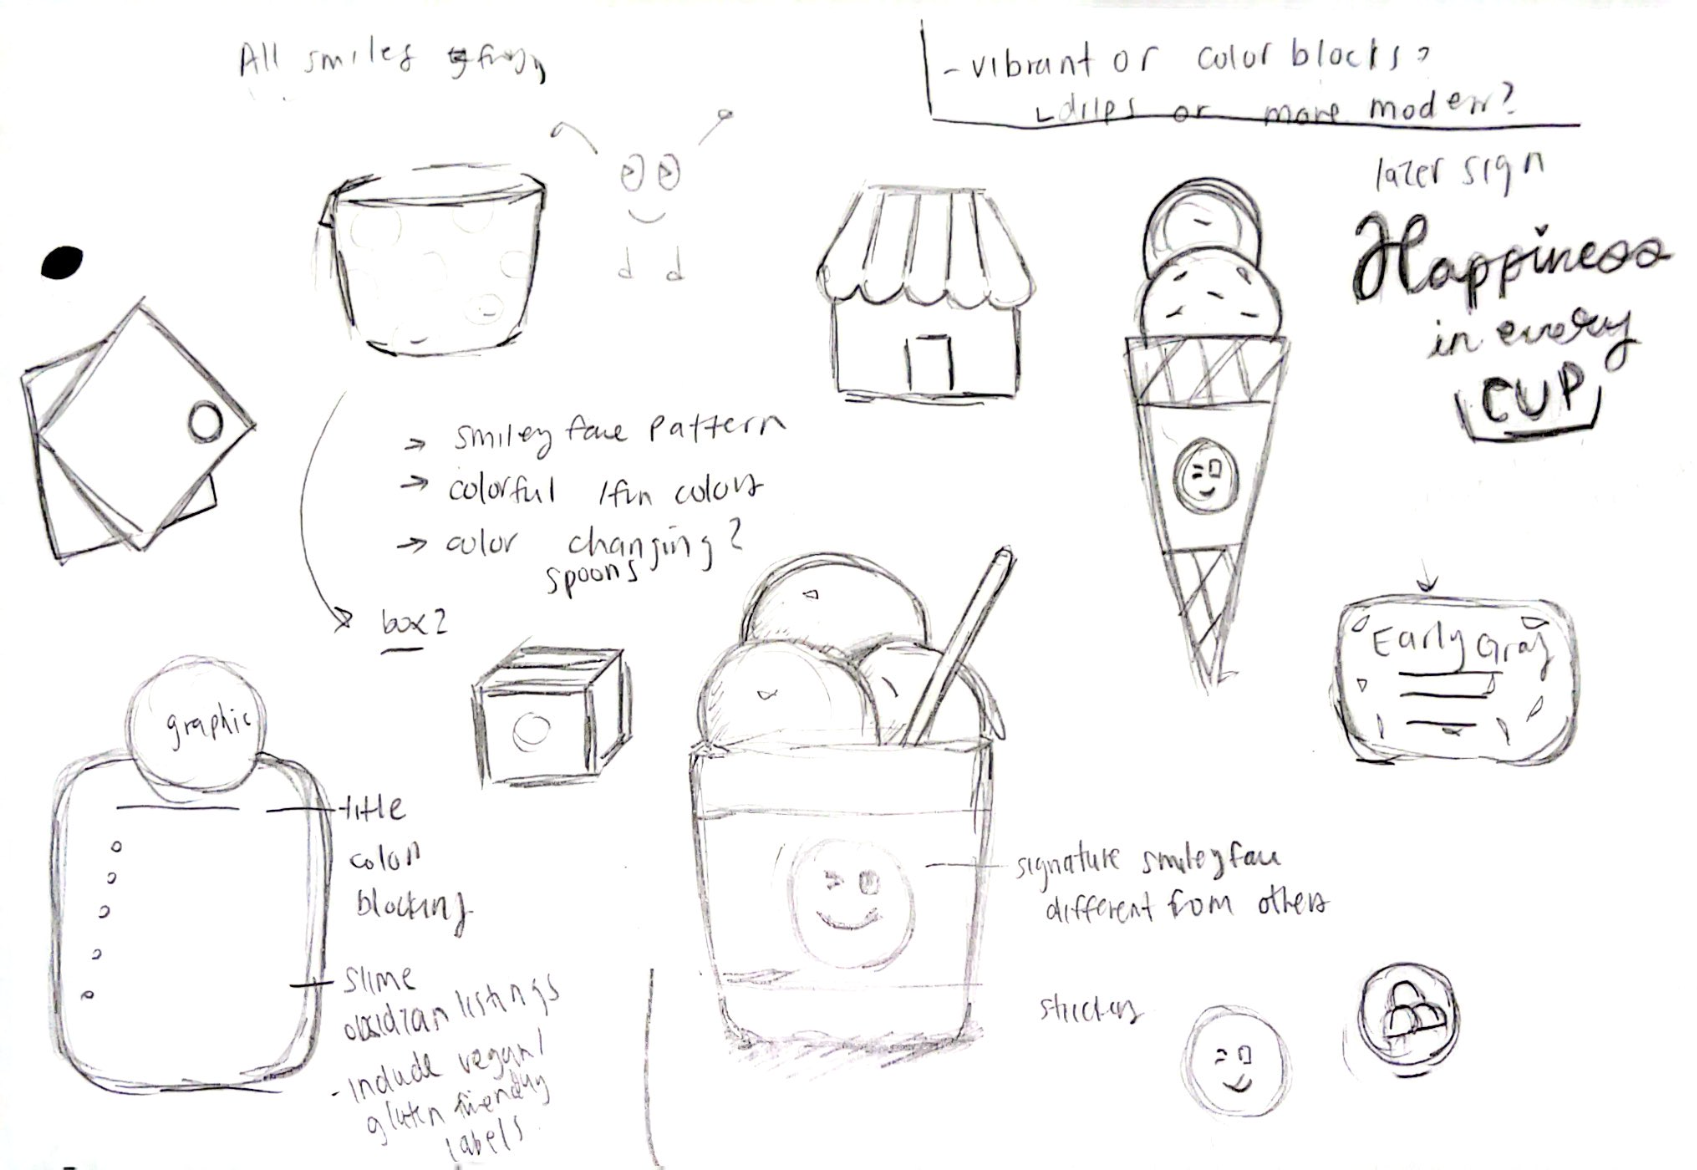 All smiles
- vibrant or color blocks?
drips or more modern?
lazer sign
Happiness
in every
CUP
→ smiley face pattern
→ colorful / fun colors
→ color changing?
spoons
box?
Early Gray
graphic
title
color
blocking
signature smiley face
different from others
slime
listings
- include vegan/
gluten friendly
labels
stickers